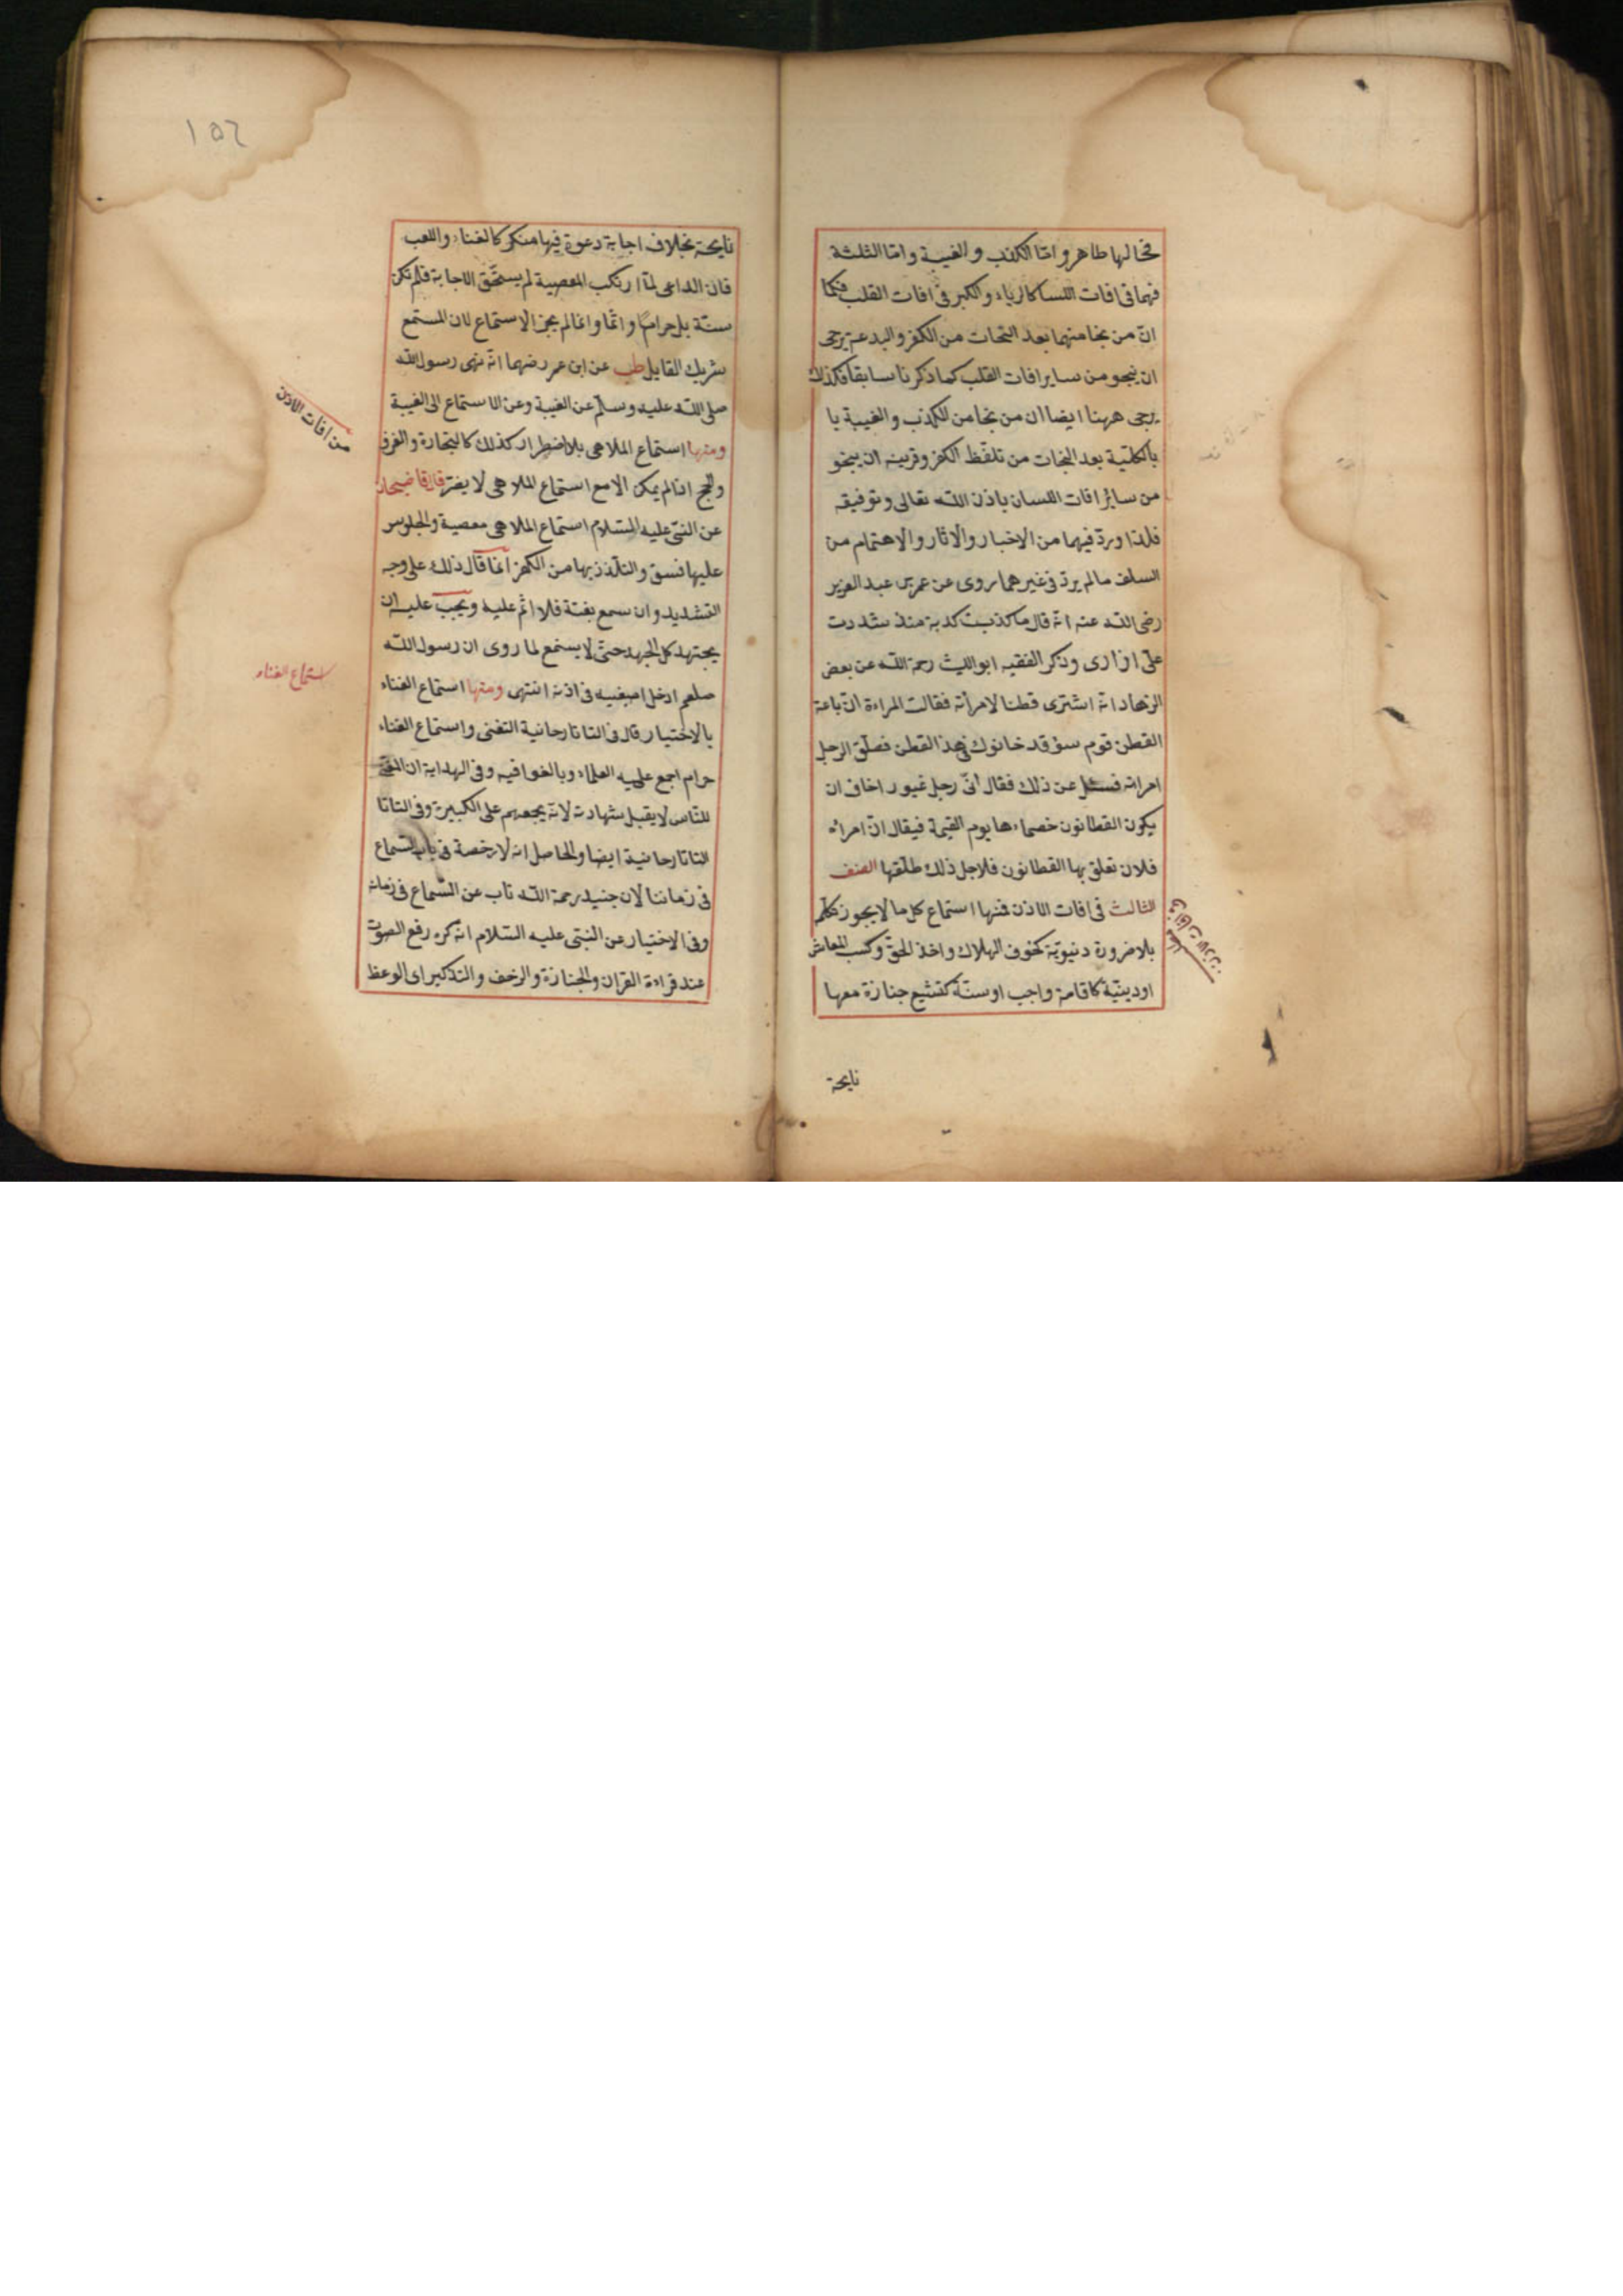 فحالها ظاهر واما الكذب والغيبة واما الثلثة
فهما فى افات اللسا كالرياء والكبر فى افات القلب فكما
انّ من نجا منهما بعد النجات من الكفر والبدعة يرجى
ان ينجو من ساير افات القلب كما ذكرنا سابقا فكذلك
يرجى ههنا ايضا ان من نجا من الكذب والغيبة با
بالكلّية بعد النجات من تلفّظ الكفر وقرينه ان ينجو
من سائر افات اللسان باذن اللّه تعالى وتوفيقه
فلذا وردّ فيهما من الاخبار والاثار والاهتمام من
السلف مالم يردّ فى غيرهما روى عن عمر بن عبد العزيز
رضى اللّه عنه انّه قال ما كذبت كذبة منذ شددت
علىّ ازارى وذكر الفقيه ابو الليث رحمة اللّه عن بعض
الزهاد انّه اشترى قطنا لامرأته فقالت المراءة انّ باعة
القطن قوم سؤ قد خانوك فى هذا القطن فطلّق الرجل
امراته فسئل عن ذلك فقال انّى رجل غيور اخاف ان
يكون القطانون خصماءها يوم القيمة فيقال انّ امراة
فلان تعلق بها القطانون فلاجل ذلك طلّقها الصنف
الثالث فى افات الاذن فمنها استماع كل ما لا يجوز تكلّم
بلا ضرورة دنيويّة كخوف الهلاك واخذ الحقّ وكسب المعاش
او دينيّة كاقامة واجب او سنّة كتشيع جنازة معها
نايحة
نايحة بخلاف اجابة دعوة فيها منكر كالغناء واللعب
فان الداعى لمّا ارتكب المعصية لم يستحقّ الاجابة فلم تكن
سنّة بل حراما واثما وانما لم يجز الاستماع لان المستمع
شريك القايل طب عن ابن عمر رضهما انّه نهى رسول اللّه
صلى اللّه عليه وسلّم عن الغيبة وعن الاستماع الى الغيبة
ومنها استماع الملاهى بلا اضطرار كذلك كالتجارة والغزو
والحج اذا لم يمكن الا مع استماع الملاهى لا يضرّ قال قاضيخان
عن النبىّ عليه السّلام استماع الملاهى معصية والجلوس
عليها فسق والتلذذ بها من الكفر انما قال ذلك على وجه
التشديد وان سمع بغتة فلا اثم عليه ويجب عليه ان
يجتهد كل الجهد حتى لا يستمع لما روى ان رسول اللّه
صلعم ادخل اصبعيه فى اذنه انتهى ومنها استماع الغناء
بالاختيار قال فى التاتارخانية التغنى واستماع الغناء
حرام اجمع عليه العلماء وبالغوا فيه وفى الهداية ان المغنّى
للنّاس لا يقبل شهادته لانّه يجمعهم على الكبيرة وفى التاتا
التاتارخانية ايضا والحاصل انه لا رخصة فى باب السّماع
فى زماننا لان جنيد رحمة اللّه تاب عن السّماع فى زمانه
وفى الاختيار عن النبّى عليه السّلام انّه كره رفع الصوت
عند قراءة القران والجنازة والزحف والتذكير اى الوعظ
من افات الاذن
استماع الغناء
١٥٦